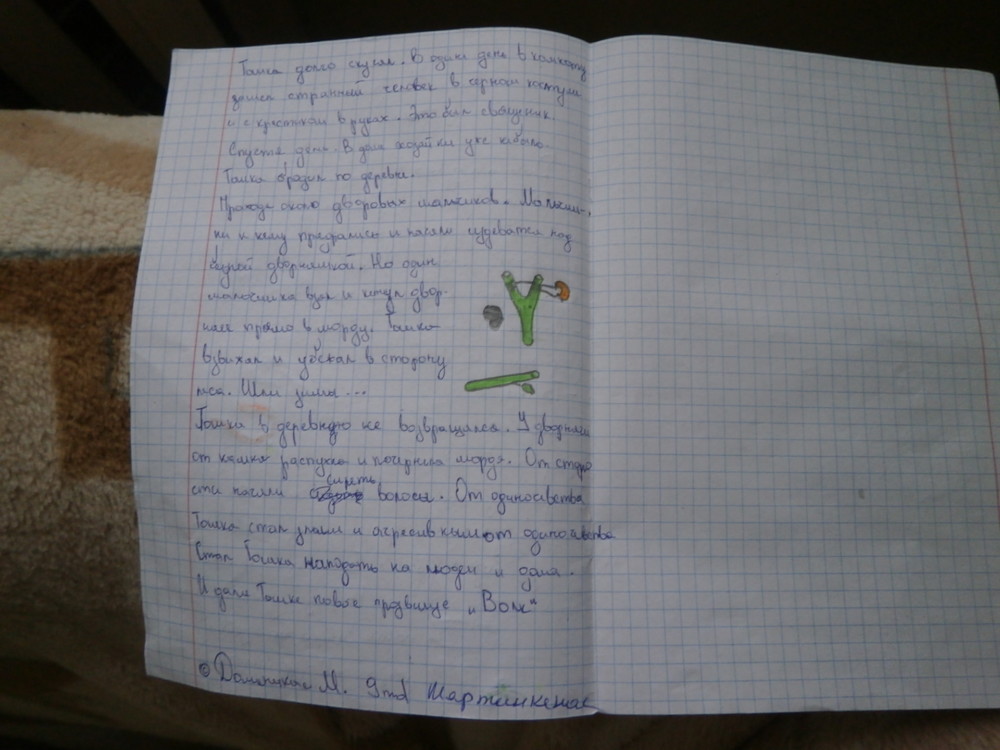 Гошка долго скучал. В один день в комнату
зашел странный человек в черном костюм
и с крестиком в руках. Это был священик.
Спустя день. В доме хозяйки уже небыло
Гошка бродил по деревне.
Проходя около дворовых мальчиков. Мальчи-
ки к нему придрались и начали издеватся над
бедной дворняшкой. Но один
мальчишка взял и кинул двор-
няге прямо в морду. Гошка
взвизжал и убежал в сторону
леса. Шли зимы...
Гошка в деревную не возвращался. У дворняги
от камня распухла и почернела морда. От старо
сти начали сидеть волосы. От одиночества
Гошка стал злым и агресивным от одиночества
Стал Гошка нападать на людей и дома.
И дали Гошке новое прозвище „Волк"
© М. 9